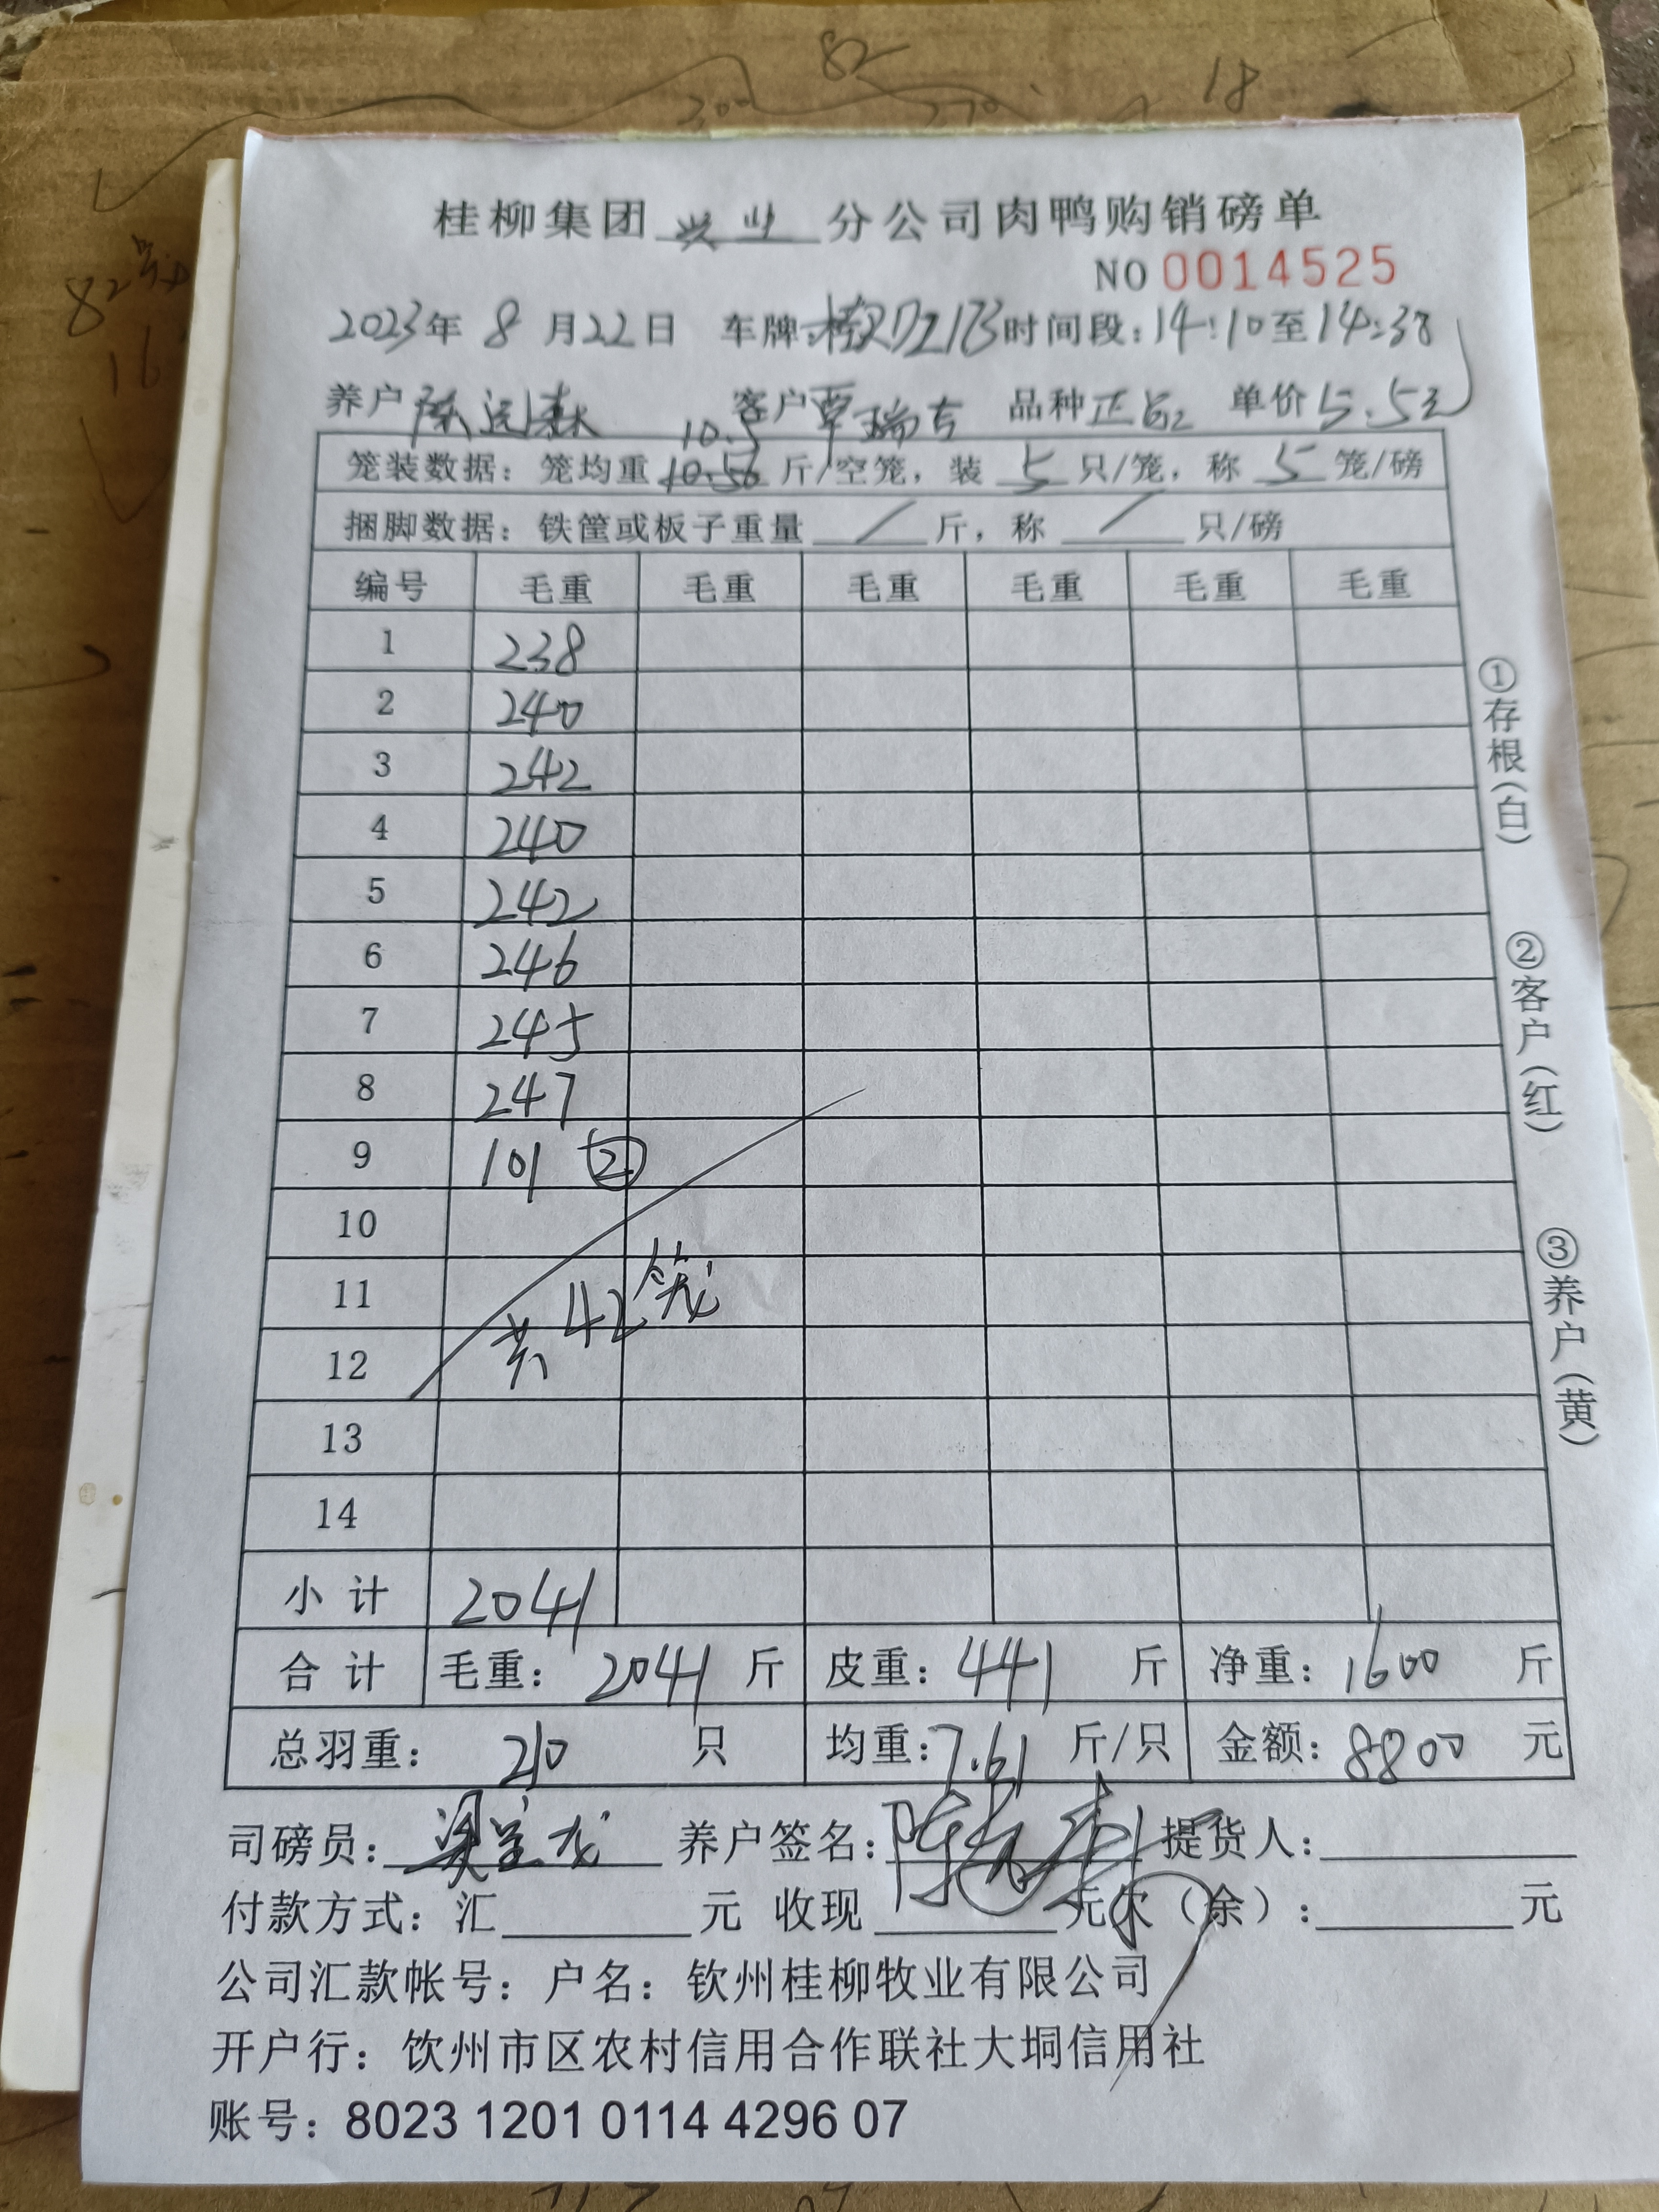 82
300
270
18
82号
16
桂柳集团 兴业 分公司肉鸭购销磅单
NO 0014525
2023年 8 月22日 车牌: 时间段:14:10至14:38
养户 客户覃瑞吉 品种 单价5.5元
10.5
笼装数据: 笼均重 10.56 斤/空笼, 装 5 只/笼, 称 5 笼/磅
捆脚数据: 铁筐或板子重量 / 斤, 称 / 只/磅
编号 毛重 毛重 毛重 毛重 毛重 毛重
1 238
2 240
3 242
4 240
5 242
6 246
7 245
8 247
9 101 ②
10
11
共42笼
12
13
14
小计 2041
合计 毛重: 2041 斤 皮重: 441 斤 净重: 1600 斤
总羽重: 210 只 均重: 7.61 斤/只 金额: 8800 元
司磅员: 养户签名: 提货人:
付款方式: 汇 元 收现 元欠(余): 元
公司汇款帐号: 户名: 钦州桂柳牧业有限公司
开户行: 钦州市区农村信用合作联社大垌信用社
账号: 8023 1201 0114 4296 07
①存根(白)
②客户(红)
③养户(黄)